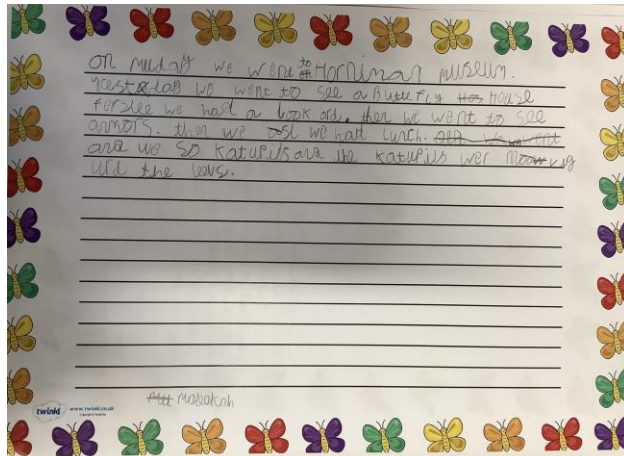 on muday we went to Horniman museum.
yesterday we went to see a Butterfly House
ferslee we had a look and. then we went to see
anmols. then we we had lunch.
and we so katupils and the katupils wer
und the levs.
Mabakah
twinkl www.twinkl.co.uk